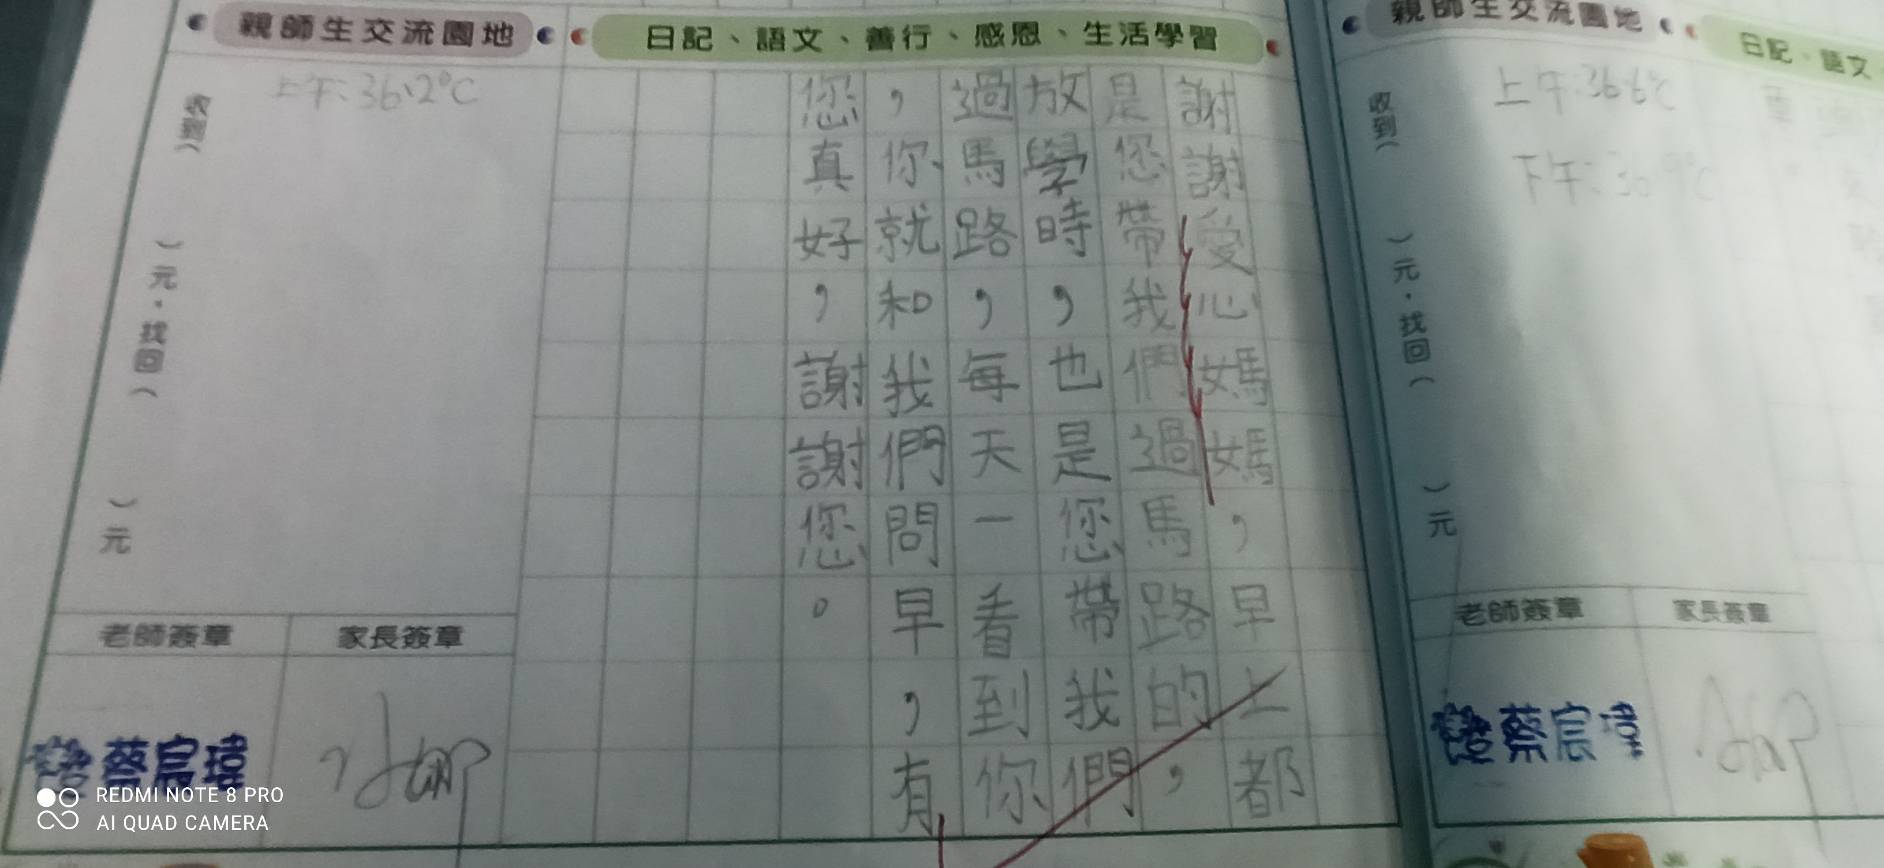 親師生交流園地
日記、語文、善行、感恩、生活學習
謝謝愛心媽媽，早上都
是您帶我們過馬路的，
放學時，也是您帶我們
過馬路，每天一看到你
，你就和我們問早，有
您真好，謝謝您。
上午:36.2°C
收到(
)元．找回(
)元
老師簽章
家長簽章
蔡宸瑋
REDMI NOTE 8 PRO
AI QUAD CAMERA
親師生交流園地
日記、語文、
上午:36.6°C
收到(
)元．找回(
)元
老師簽章
家長簽章
蔡宸瑋